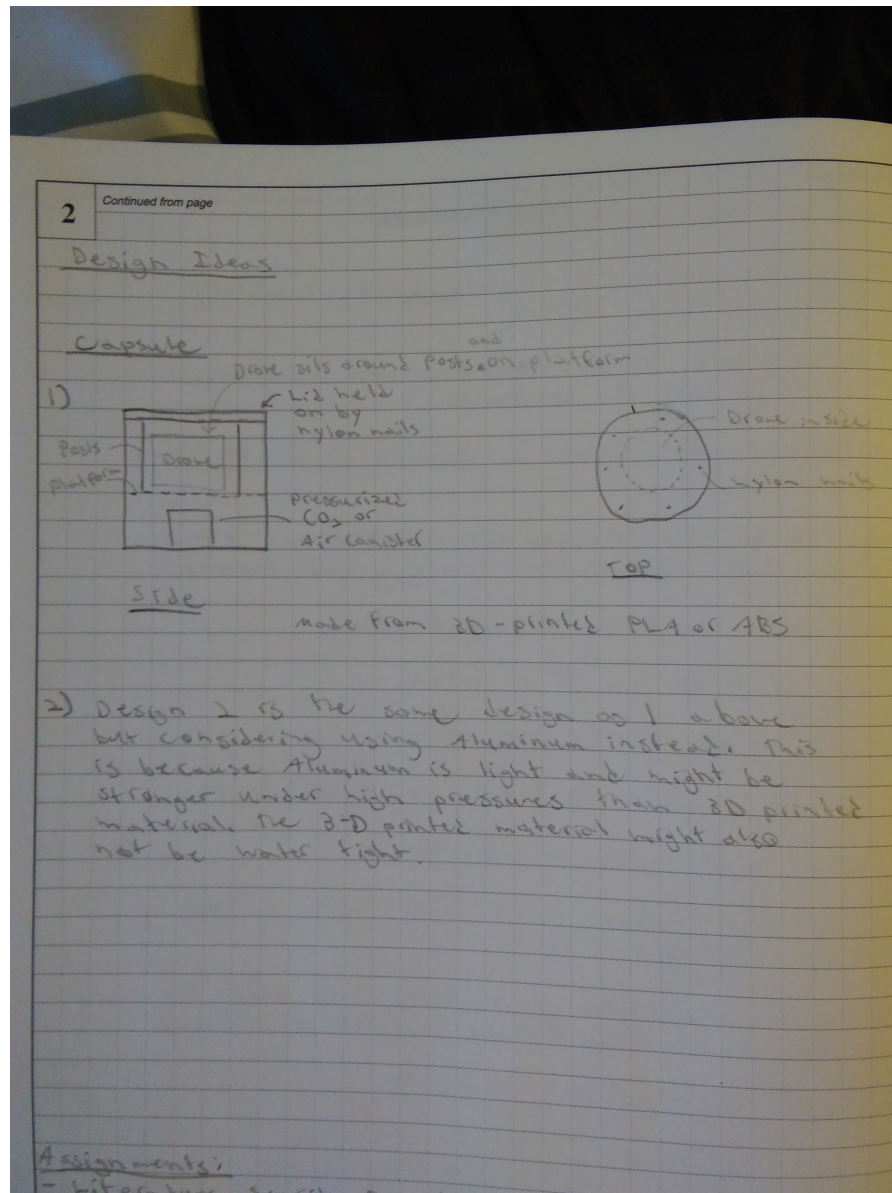 2
Continued from page
Design Ideas
Capsule
and
Drone sits around posts on platform
1)
Lid held
on by
nylon nails
Posts
platform
Drone
pressurized
CO2 or
Air Canister
Side
Drone inside
nylon nails
TOP
made from 3D-printed PLA or ABS
2) Design 2 is the same design as 1 above
but considering using Aluminum instead. This
is because Aluminum is light and might be
stronger under high pressures than 3D printed
material. The 3-D printed material might also
not be water tight.
Assignments:
- Literature